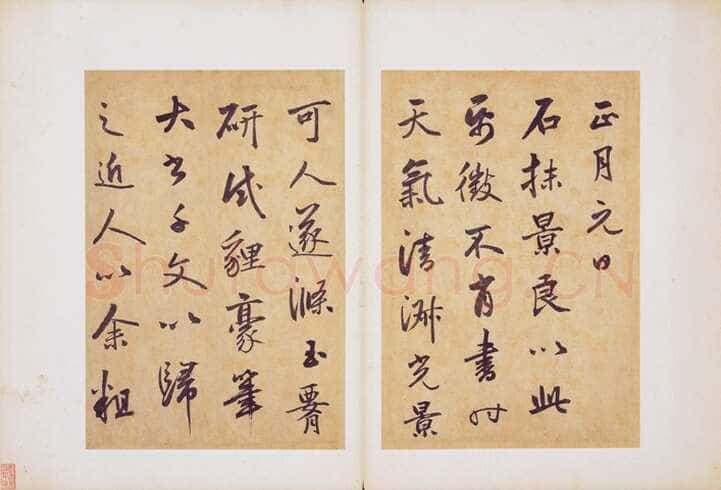 正月元日
石抹景良以此
帋徵不肖書時
天氣清淑光景
可人遂滌玉
研試貍豪筆
大書千文以歸
之近人以余粗
Shufawang.CN